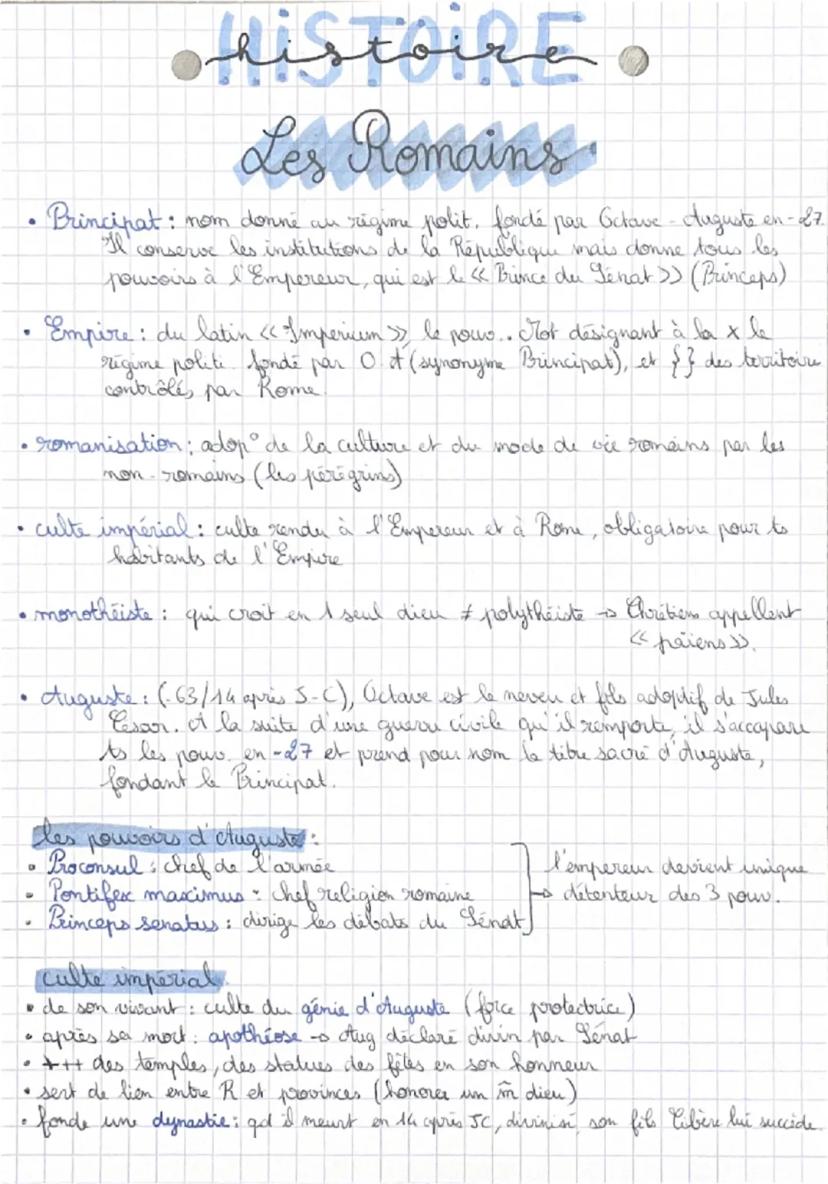 HiSTOiRE
histoire
Les Romains
• Principat : nom donné au régime polit. fondé par Octave - Auguste en -27.
Il conserve les institutions de la République mais donne tous les
pouvoirs à l'Empereur, qui est le << Prince du Sénat >> (Princeps)
• Empire : du latin << Imperium >>, le pouv.. Mot désignant à la x le
régime politi. fondé par O. A (synonyme Principat), et { } des territoire
contrôlés par Rome.
• romanisation : adop° de la culture et du mode de vie romains par les
non-romains (les pérégrins)
• culte impérial : culte rendu à l'Empereur et à Rome, obligatoire pour ts
habitants de l'Empire
• monothéiste : qui croit en 1 seul dieu ≠ polythéiste → Chrétiens appellent
<< païens >>.
• Auguste : (-63/14 après J-C), Octave est le neveu et fils adoptif de Jules
César. A la suite d'une guerre civile qu'il remporte, il s'accapare
ts les pouv. en -27 et prend pour nom le titre sacré d'Auguste,
fondant le Principat.
les pouvoirs d'Auguste :
• Proconsul : chef de l'armée
• Pontifex maximus : chef religion romaine
• Princeps senatus : dirige les débats du Sénat
l'empereur devient unique
→ détenteur des 3 pouv.
culte impérial
• de son vivant : culte du génie d'Auguste (force protectrice)
• après sa mort : apothéose → Aug déclaré divin par Sénat
• +++ des temples, des statues des fêtes en son honneur
• sert de lien entre R et provinces (honorer un m̂ dieu)
• fonde une dynastie : qd il meurt en 14 après JC, divinisé, son fils Tibère lui succède